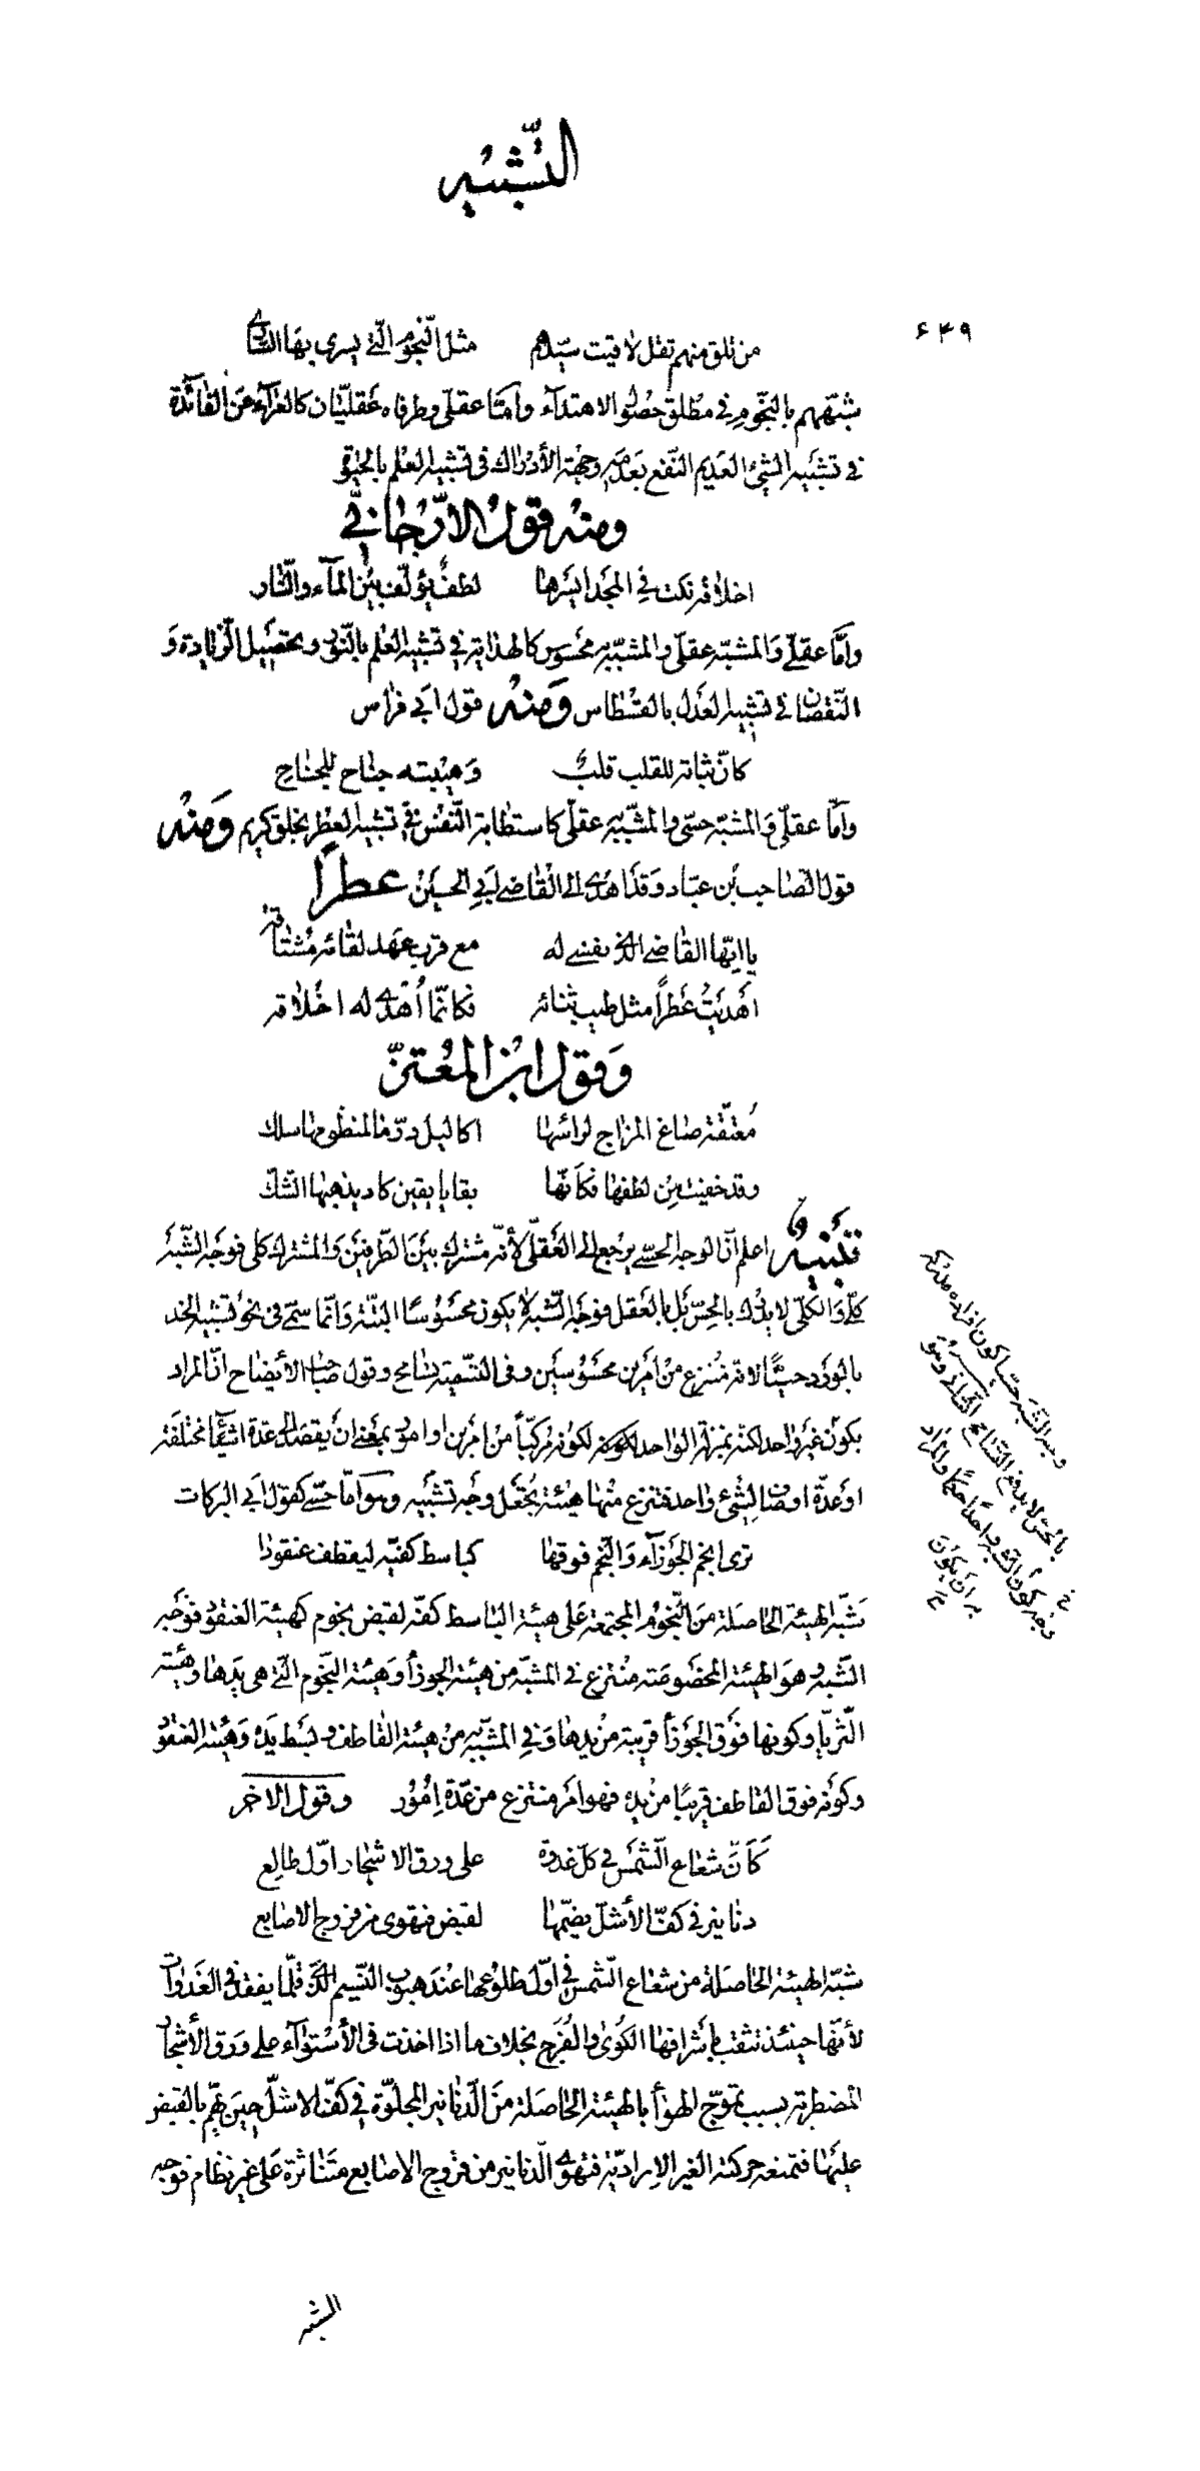 التّشبيه
۶۴۹
من تلق منهم تقل لاقيت سيّدهم مثل النّجوم الّتي يسري بها السّاري
شبّههم بالنّجوم في مطلق حصول الاهتدآء وامّا عقليّ وطرفاه عقليّان كالعرآء عن الفائدة
في تشبيه الشيء العديم النّفع بعدمه وجهة الأدراك في تشبيه العلم بالحيوة
ومنه قول الارّجاني
اخلاقه نكت في المجد ايسرها لطفٌ يؤلّف بين المآء والنّار
وامّا عقليّ والمشبّه عقليّ والمشبّه به محسوس كالهداية في تشبيه العلم بالنّور وتحصيل الزّيادة و
النّقصان في تشبيه العدل بالقسطاس ومنه قول ابي فراس
كانّ ثباته للقلب قلبٌ وهيبته جناح للجناح
وامّا عقليّ والمشبّه حسّي والمشبّه به عقليّ كاستطابة النّفس في تشبيه العطر بخلق كريم ومنه
قول الصّاحب بن عبّاد وقد اهدى الى القاضي ابي الحسين عطراً
يا ايّها القاضي الّذي نفسي له مع قرب عهد لقائه مشتاقه
اهديتُ عطراً مثل طيب ثنائه فكانّما اُهدي له اخلاقه
وقول ابن المعتزّ
مُعتّقة صاغ المزاج لرأسها اكاليل درّ ما لمنظومها سلك
وقد خفيت من لطفها فكانّها بقايا يقين كاد يذهبها الشّك
تنبيه اعلم انّ الوجه الحسّي يرجع الى العقليّ لأنّه مشترك بين الطّرفين والمشترك كلّي فوجه الشّبه
كلّي والكلّي لا يدرك بالحسّ بل بالعقل فوجه الشّبه لا يكون محسوسًا البتّة وانّما سمّي في نحو تشبيه الخد
بالورد حسيًّا لانّه مُنتزع من امرين محسوسين وفي التّسمية تسامح وقول صاحب الأيضاح انّ المراد
يكون غير واحد لكنّه بمنزلة الواحد لكونه مركّبًا من امرين او امور بمعنى ان يقصد الى عدة اشيآء مختلفة
او عدّة اوصاف لشيء واحد فتنزع منها هيئة يجعل وجه تشبيه وهو امّا حسّي كقول ابي البركات
ترى انجم الجوزآء والنّجم فوقها كباسط كفّيه ليقطف عنقودا
شبّه الهيئة الحاصلة من النّجوم المجتمعة على هيئة الباسط كفّه لقبض نجوم كهيئة العنقود فوجه
الشّبه هو الهيئة المخصوصة منتزع في المشبّه من هيئة الجوزآ وهيئة النّجوم الّتي هي يدها وهيئة
الثّريّا وكونها فوق الجوزآ قريبة من يدها وفي المشبّه به من هيئة القاطف وبسط يده وهيئة العنقود
وكونه فوق القاطف قريبًا من يده فهو امر منتزع من عدّة اِمُوُر وقول الاخر
كأنّ شعاع الشّمس في كلّ غدوة على ورق الاشجار اوّل طالع
دنانير في كفّ الأشلّ يضمّها لقبض فتهوى من فروج الاصابع
شبّه الهيئة الحاصلة من شعاع الشّمس في اوّل طلوعها عند هبوب النّسيم الّذي قلّما يفقد في الغدوات
لأنّها حينئذ تنقب باشراقها الكوى والفُرج بخلاف ما اذا اخذت في الأستوآء على ورق الأشجار
المضطربة بسبب تموّج الهوآ بالهيئة الحاصلة من الدّنانير المجلوّة في كفّ الاشلّ حين تهمّ بالقبض
عليها فتمنعه حركته الغير الاِراديّة فتهوي الدّنانير من فروج الاصابع متناثرة على غير نظام فوجه
وجه الشّبه حسيّا كون افراده مدركة
بالحسّ لا يدفع التّسامح
المشبه